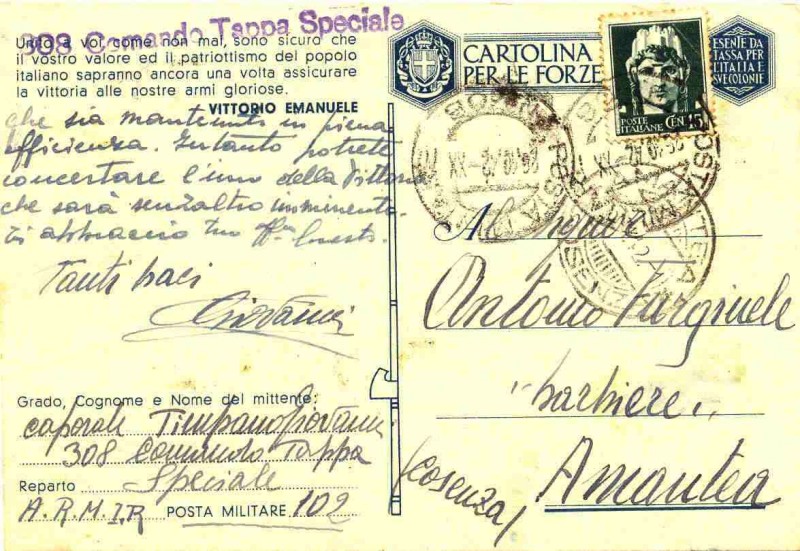 308 Comando Tappa Speciale
Unito a voi, come non mai, sono sicuro che
il vostro valore ed il patriottismo del popolo
italiano sapranno ancora una volta assicurare
la vittoria alle nostre armi gloriose.
VITTORIO EMANUELE
che sia mantenuto in piena
efficienza. Intanto potrete
concertare l'inno della Vittoria
che sarà senz'altro imminente.
Vi abbraccio tuo
Tanti baci
Giovanni
Grado, Cognome e Nome del mittente:
caporale Timpano Giovanni
308 Comando Tappa
Speciale
Reparto
A.R.M.I.R POSTA MILITARE 102
CARTOLINA
PER LE FORZE
ESENTE DA
TASSA PER
L'ITALIA E
SUE COLONIE
POSTE
ITALIANE CENT. 15
POSTA
XX
Al
Antonio
"barbiere"
Amantea
(Cosenza)